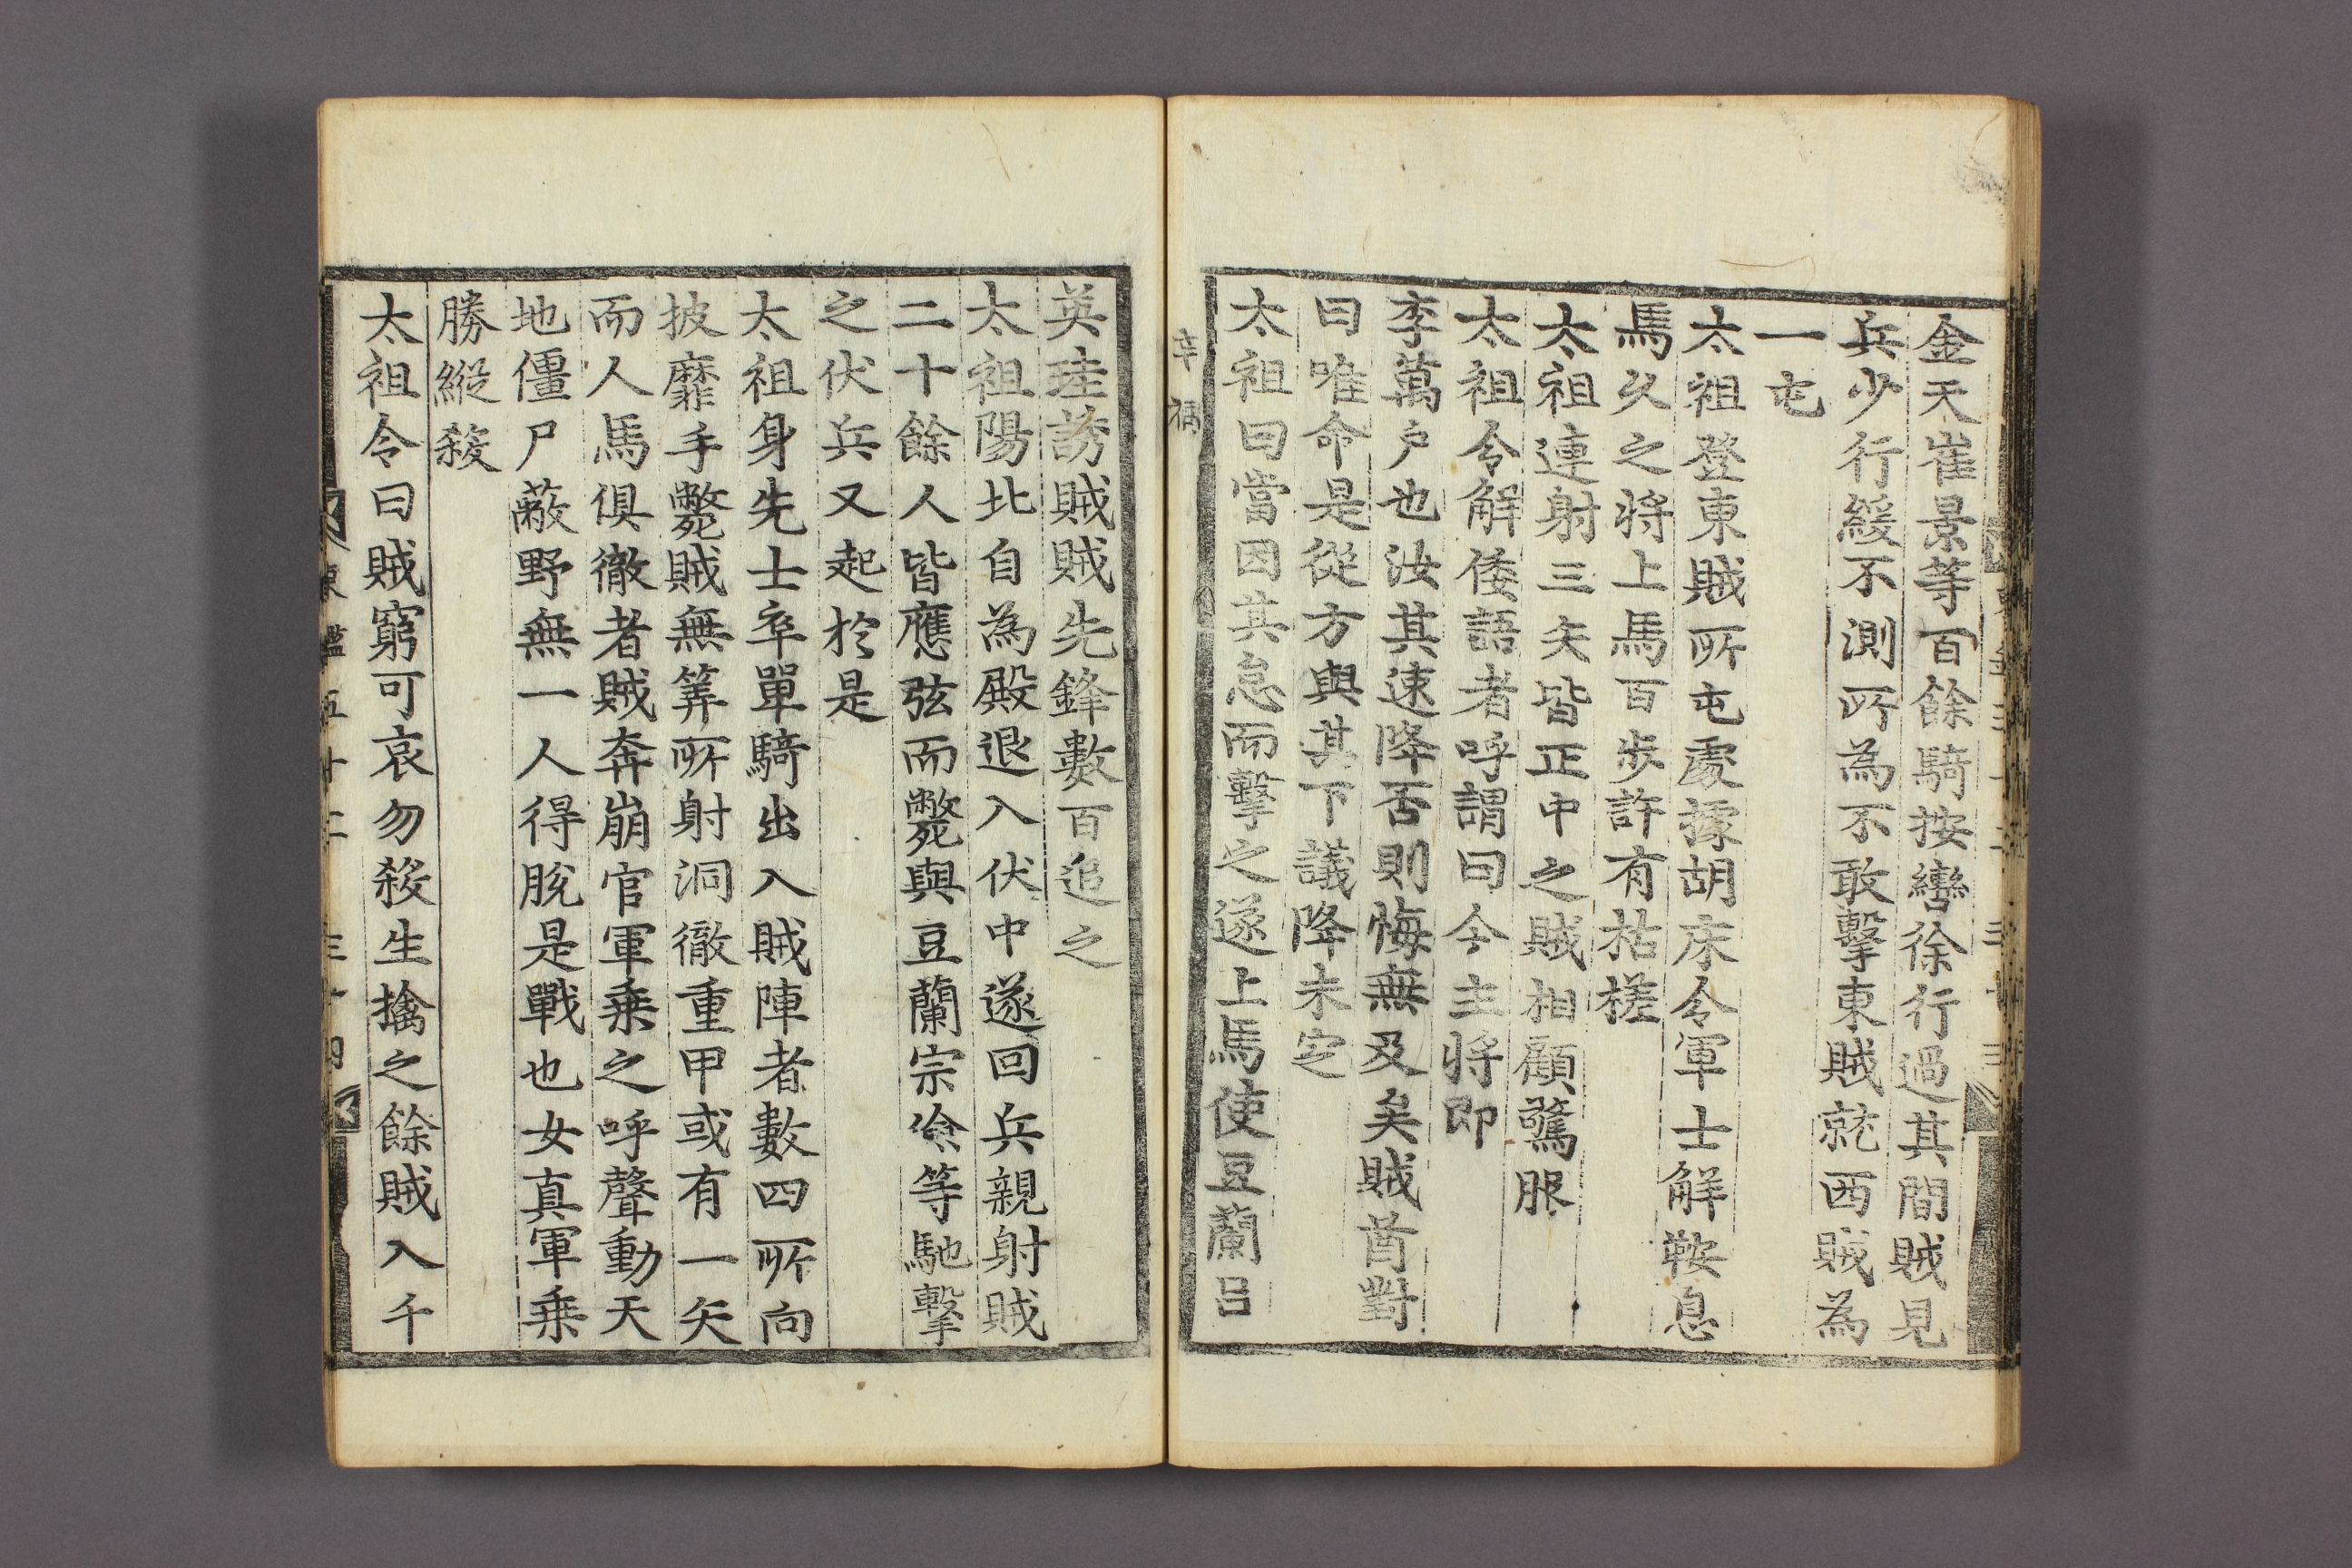 金天崔景等百餘騎按轡徐行過其間賊見
兵少行緩不測所為不敢擊東賊就西賊為
一屯
太祖登東賊所屯處據胡床令軍士解鞍息
馬久之將上馬百步許有枯槎
太祖連射三矢皆正中之賊相顧驚服
太祖令解倭語者呼謂曰今主將即
李萬户也汝其速降否則悔無及矣賊酋對
曰唯命是從方與其下議降未定
太祖曰當因其怠而擊之遂上馬使豆蘭呂
辛禑
英珪誘賊賊先鋒數百追之
太祖陽北自為殿退入伏中遂回兵親射賊
二十餘人皆應弦而斃與豆蘭宗儉等馳擊
之伏兵又起於是
太祖身先士卒單騎出入賊陣者數四所向
披靡手斃賊無筭所射洞徹重甲或有一矢
而人馬俱徹者賊奔崩官軍乗之呼聲動天
地僵尸蔽野無一人得脫是戰也女真軍乗
勝縱殺
太祖令曰賊窮可哀勿殺生擒之餘賊入千
東鑑五十二 三十四